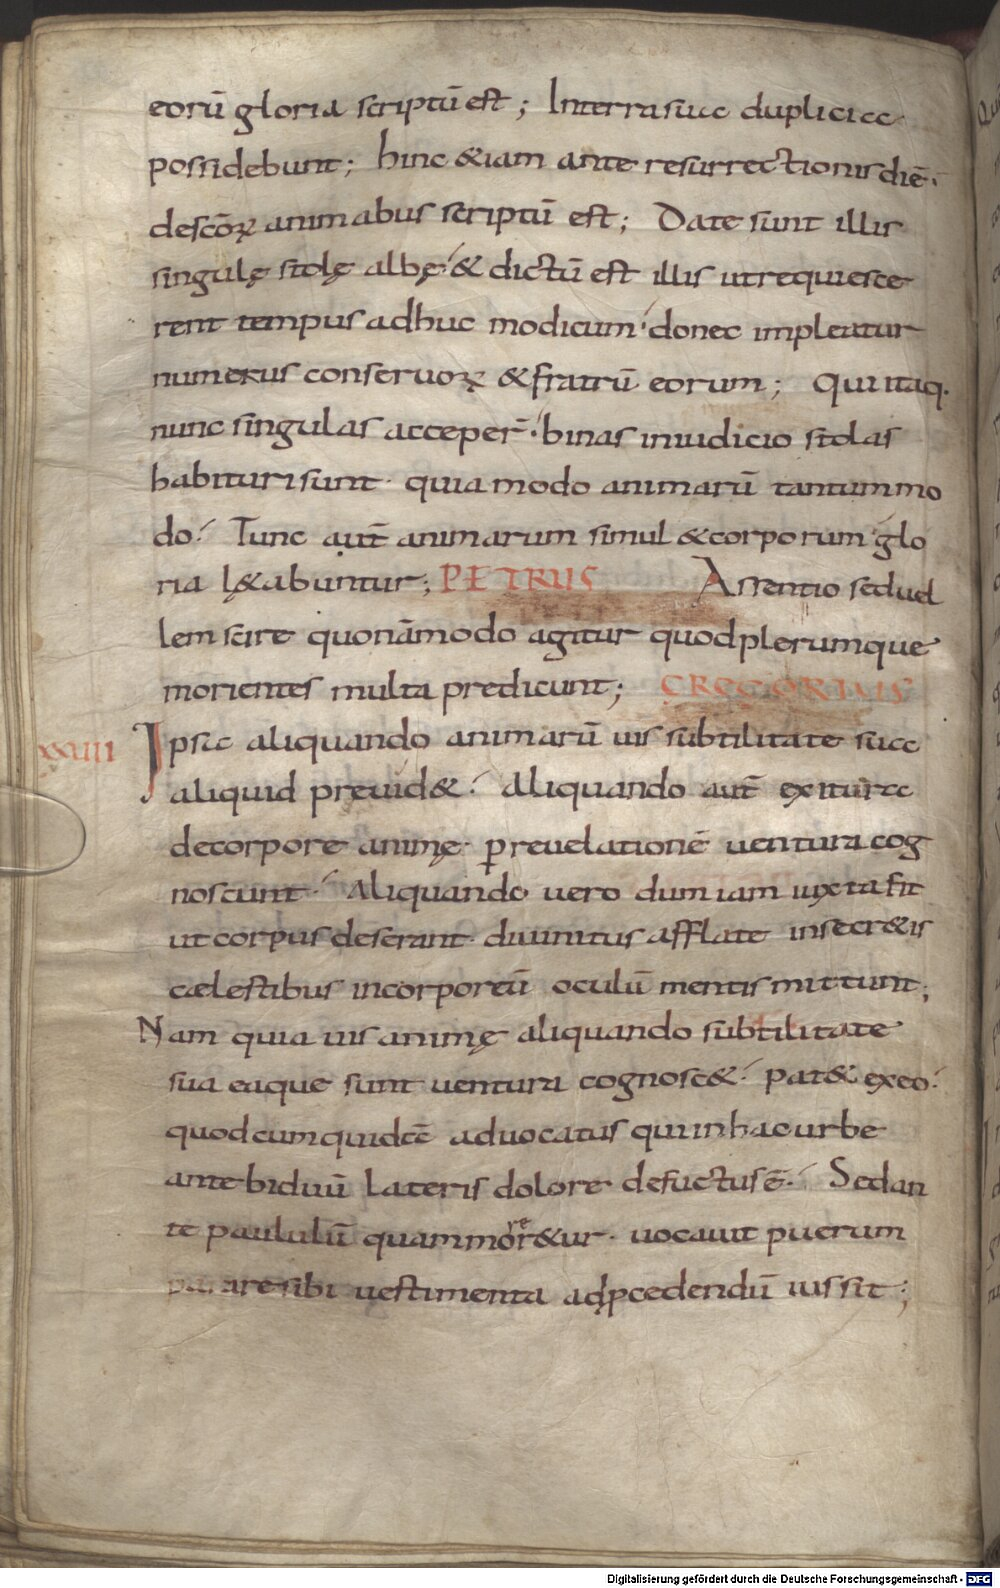 eorū gloria scriptū est; Interra sua duplicia
possidebunt; hinc &iam ante resurrectionis diē.
descōꝝ animabus scriptū est; Date sunt illis
singulę stolę albę. & dictū est illis utrequiesce
rent tempus adhuc modicum. donec impleatur
numerus conseruoꝝ & fratrū eorum; Qui itaq.
nunc singulas acceper̄. binas iniudicio stolas
habituri sunt. quia modo animarū tantummo
do. Tunc aut̄ animarum simul & corporum glo
ria l&abuntur; PETRUS Assentio sed uel
lem scire quonāmodo agitur quod plerumque
morientes multa predicunt; GREGORIUS
XXVIII Ipsa aliquando animarū uis subtilitate sua
aliquid preuid&. Aliquando aut̄ exiturae
decorpore animę. ꝑ reuelationē uentura cog
noscunt. Aliquando uero dum iam iuxta fit
ut corpus deserant. diuinitus afflate insecr&is
cælestibus incorporeū oculū mentis mittunt;
Nam quia uis animę aliquando subtilitate
sua eaque sunt uentura cognosc&. pat& exeo.
quod cumquidēē aduocatus qui in hac urbe
ante biduū lateris dolore defuctus ē. Sed an
te paululū quam mor&ur. uocauit puerum
re
parare sibi uestimenta adꝓcedendū iussit;
Digitalisierung gefördert durch die Deutsche Forschungsgemeinschaft - DFG